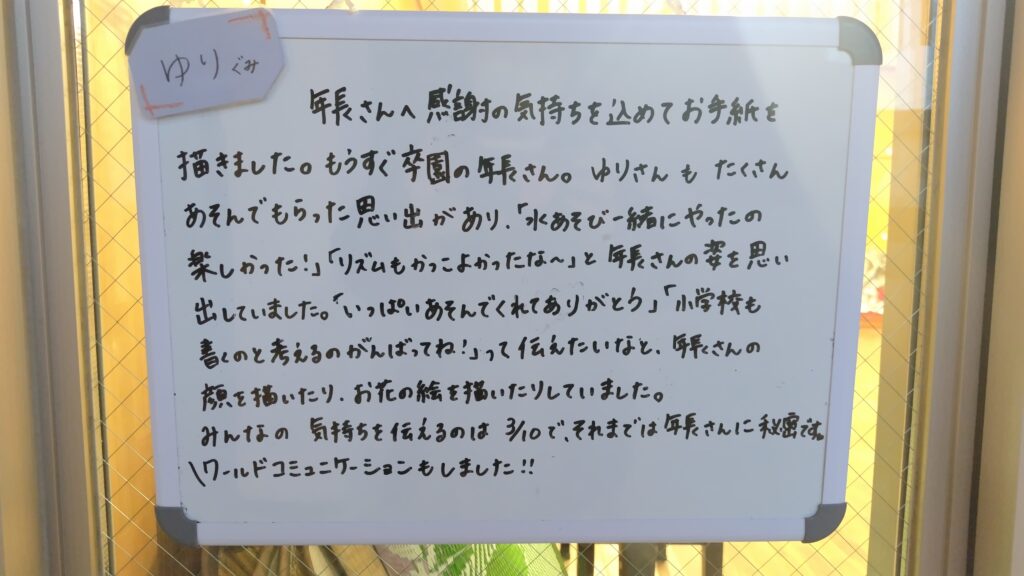 ゆりぐみ
年長さんへ感謝の気持ちを込めてお手紙を
描きました。もうすぐ卒園の年長さん。ゆりさんも たくさん
あそんでもらった思い出があり、「水あそび一緒にやったの
楽しかった!」「リズムもかっこよかったな〜」と年長さんの姿を思い
出していました。「いっぱいあそんでくれてありがとう」「小学校も
書くのと考えるのがんばってね!」って伝えたいなと、年長さんの
顔を描いたり、お花の絵を描いたりしていました。
みんなの 気持ちを伝えるのは 3/10で、それまでは年長さんに秘密です。
\ワールドコミュニケーションもしました!!